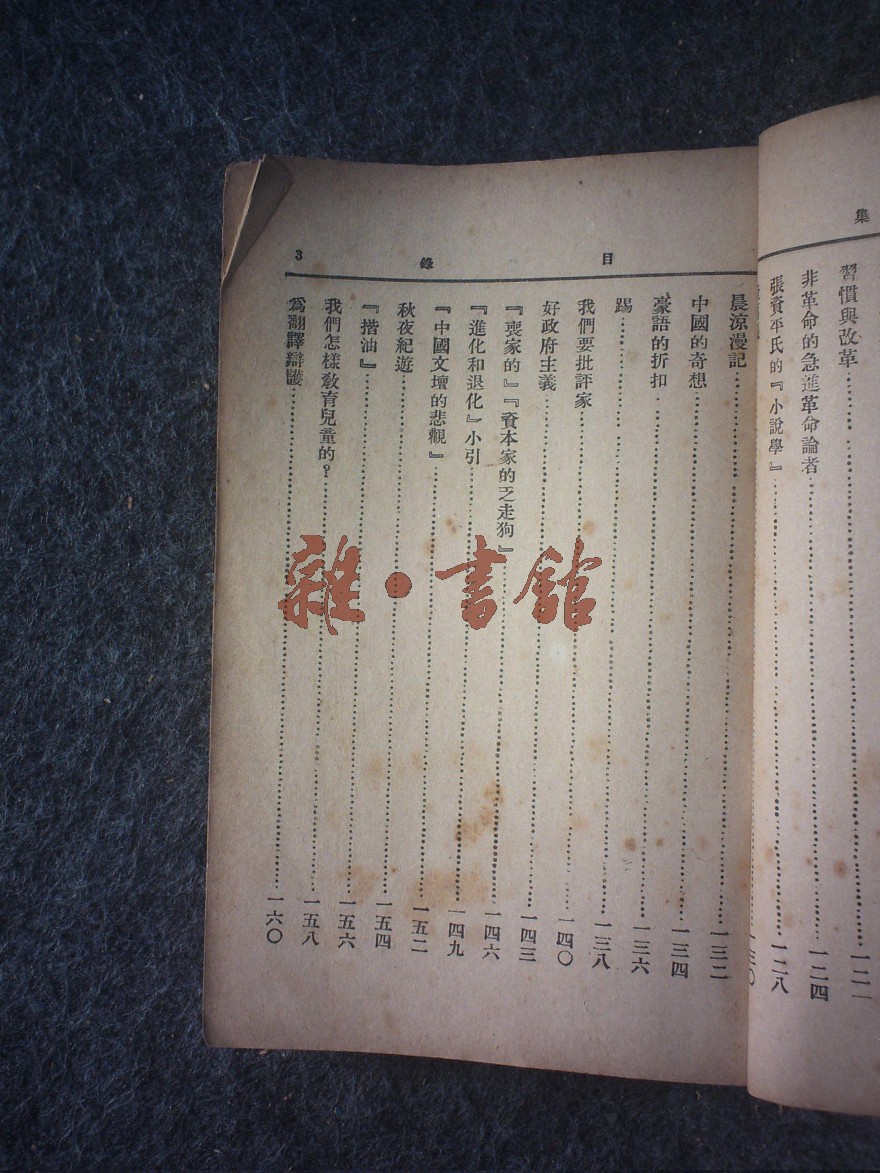 集
習慣與改革……一二一
非革命的急進革命論者……一二四
張資平氏的『小說學』……一二八
一三〇
目錄 3
晨涼漫記……一三二
中國的奇想……一三四
豪語的折扣……一三六
踢……一三八
我們要批評家……一四〇
好政府主義……一四三
『喪家的』『資本家的乏走狗』……一四六
『進化和退化』小引……一四九
『中國文壇的悲觀』……一五二
秋夜紀遊……一五四
『揩油』……一五六
我們怎樣敎育兒童的？……一五八
爲翻譯辯護……一六〇
雜·書館